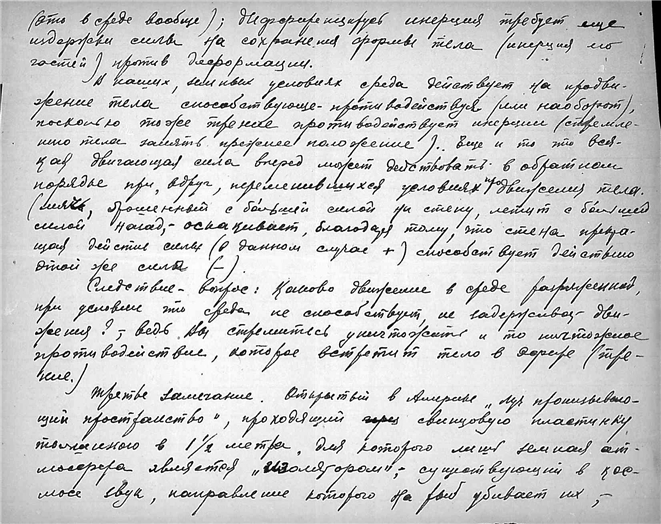 (это в среде вообще); дифференцируя инерция требует еще
издержки силы на сохранения формы тела (инерция
частей) против деформации.
В наших, земных условиях среда действует на продви-
жение тела способствующе-противодействуя (или наоборот),
поскольку тоже трение противодействует инерции (стремле-
нию тела занять прежнее положение). Еще и то что вся-
кая двигающая сила вперед может действовать в обратном
порядке при, вдруг, переменившихся условиях движения тела.
(мяч, брошенный с большей силой на стену, летит с большей
силой назад,- оскакивает, благодаря тому, что стена прекра-
щая действие силы (в данном случае +) способствует действию
этой же силы (-).
Следствие-вопрос: Каково движение в среде разряженной,
при условии что среда не способствует, не задерживает дви-
жения?,- ведь Вы стремитесь уничтожить и то ничтожное
противодействие, которое встретит тело в эфире (тре-
ние.)
Третье замечание. Открытый в Америке „луч пронизываю-
щий пространство", проходящий свинцовую пластинку
толщиною в 1½ метра, для которого лишь земная ат-
мосфера является „изолятором",- существующий в кос-
мосе звук, направление которого на рыб убивает их,-